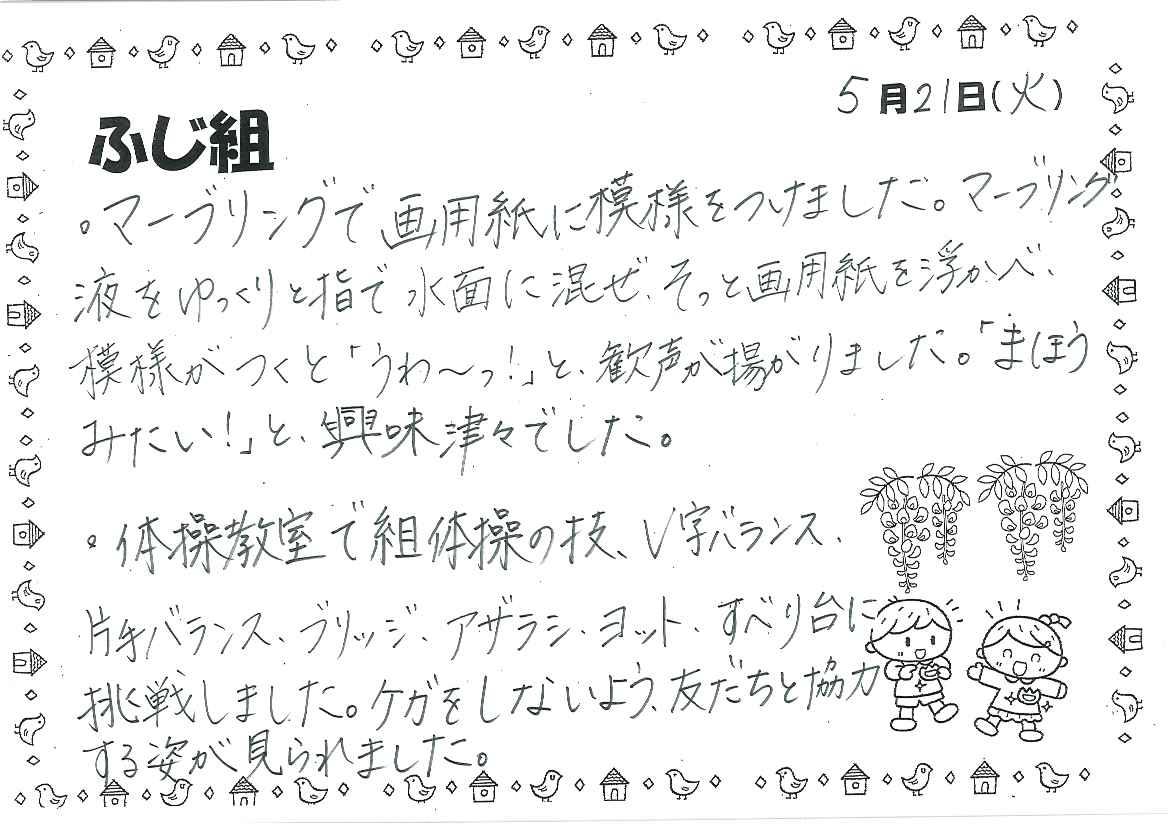 5月21日(火)
ふじ組
。マーブリングで画用紙に模様をつけました。マーブリング
液をゆっくりと指で水面に混ぜ、そっと画用紙を浮かべ、
模様がつくと「うわ〜っ!」と、歓声が揚がりました。「まほう
みたい!」と、興味津々でした。
。体操教室で組体操の技、V字バランス、
片手バランス、ブリッジ、アザラシ、ヨット、すべり台に
挑戦しました。ケガをしないよう、友だちと協力
する姿が見られました。